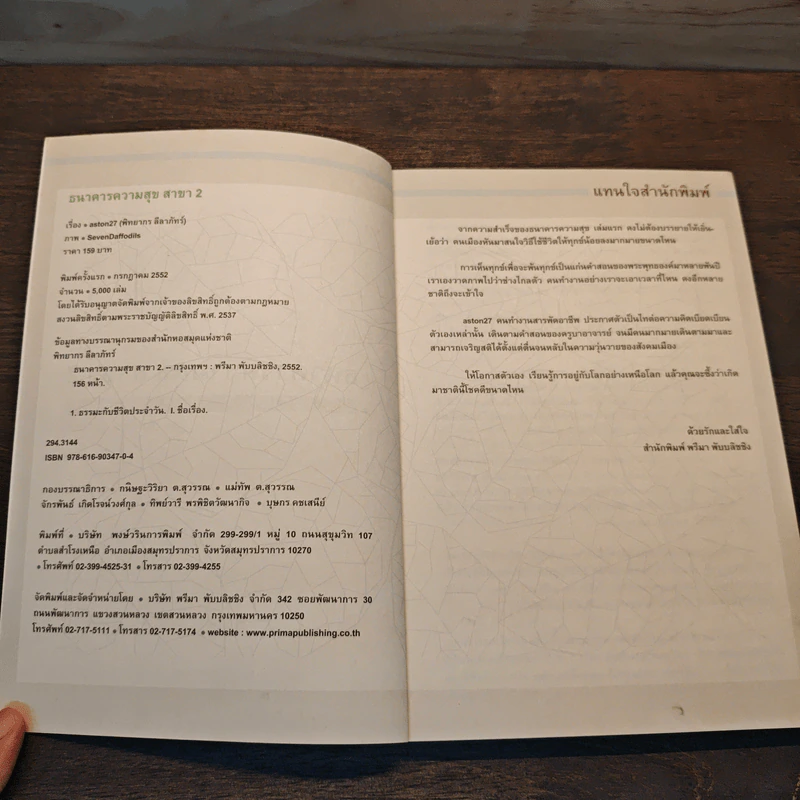 ธนาคารความสุข สาขา 2
เรื่อง • aston27 (พิทยากร ลีลาภัทร์)
ภาพ • SevenDaffodils
ราคา 159 บาท
พิมพ์ครั้งแรก • กรกฎาคม 2552
จำนวน • 5,000 เล่ม
โดยได้รับอนุญาตจัดพิมพ์จากเจ้าของลิขสิทธิ์ถูกต้องตามกฎหมาย
สงวนลิขสิทธิ์ตามพระราชบัญญัติลิขสิทธิ์ พ.ศ. 2537
ข้อมูลทางบรรณานุกรมของสำนักหอสมุดแห่งชาติ
พิทยากร ลีลาภัทร์
ธนาคารความสุข สาขา 2. -- กรุงเทพฯ : พรีมา พับบลิชชิง, 2552.
156 หน้า.
1. ธรรมะกับชีวิตประจำวัน. I. ชื่อเรื่อง.
294.3144
ISBN 978-616-90347-0-4
กองบรรณาธิการ • กนิษฐะวิริยา ต.สุวรรณ • แม่ทัพ ต.สุวรรณ
จักรพันธ์ เกิดโรจน์วงศ์กุล • ทิพย์วารี พรพิชิตวัฒนากิจ • บุษกร คชเสนีย์
พิมพ์ที่ • บริษัท พงษ์วรินการพิมพ์ จำกัด 299-299/1 หมู่ 10 ถนนสุขุมวิท 107
ตำบลสำโรงเหนือ อำเภอเมืองสมุทรปราการ จังหวัดสมุทรปราการ 10270
• โทรศัพท์ 02-399-4525-31 • โทรสาร 02-399-4255
จัดพิมพ์และจัดจำหน่ายโดย • บริษัท พรีมา พับบลิชชิง จำกัด 342 ซอยพัฒนาการ 30
ถนนพัฒนาการ แขวงสวนหลวง เขตสวนหลวง กรุงเทพมหานคร 10250
โทรศัพท์ 02-717-5111 • โทรสาร 02-717-5174 • website : www.primapublishing.co.th
แทนใจสำนักพิมพ์
จากความสำเร็จของธนาคารความสุข เล่มแรก คงไม่ต้องบรรยายให้เยิ่น-
เย้อว่า คนเมืองหันมาสนใจวิธีใช้ชีวิตให้ทุกข์น้อยลงมากมายขนาดไหน
การเห็นทุกข์เพื่อจะพ้นทุกข์เป็นแก่นคำสอนของพระพุทธองค์มาหลายพันปี
เราเองวาดภาพไปว่าช่างไกลตัว คนทำงานอย่างเราจะเอาเวลาที่ไหน คงอีกหลาย
ชาติถึงจะเข้าใจ
aston27 คนทำงานสารพัดอาชีพ ประกาศตัวเป็นไทต่อความคิดเบียดเบียน
ตัวเองเหล่านั้น เดินตามคำสอนของครูบาอาจารย์ จนมีคนมากมายเดินตามมาและ
สามารถเจริญสติได้ตั้งแต่ตื่นจนหลับในความวุ่นวายของสังคมเมือง
ให้โอกาสตัวเอง เรียนรู้การอยู่กับโลกอย่างเหนือโลก แล้วคุณจะซึ้งว่าเกิด
มาชาตินี้โชคดีขนาดไหน
ด้วยรักและใส่ใจ
สำนักพิมพ์ พรีมา พับบลิชชิง